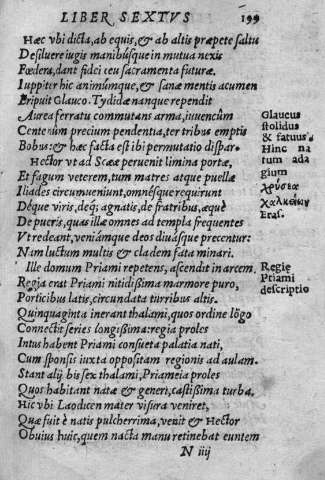 LIBER SEXTVS 199
Hæc vbi dicta, ab equis, & ab altis præpete saltu
Desiluere iugis manibúsque in mutua nexis
Fœdera, dant fidei ceu sacramenta futuræ.
Iuppiter hic animúmque, & sanæ mentis acumen
Eripuit Glauco. Tydidæ nanque rependit
Aurea ferratu commutans arma, iuuencûm
Centenûm precium pendentia, ter tribus emptis
Bobus: & hæc facta est ibi permutatio dispar.
Hector vt ad Scææ peruenit limina portæ,
Et fagum veterem, tum matres atque puellæ
Iliades circumueniunt, omnésque requirunt
Déque viris, deq; agnatis, de fratribus, æquè
De pueris, quas ille omnes ad templa frequentes
Vt redeant, veniámque deos diuásque precentur:
Nam luctum multis & cladem fata minari.
Ille domum Priami repetens, ascendit in arcem.
Regia erat Priami nitidißima marmore puro,
Porticibus latis, circundata turribus altis.
Quinquaginta inerant thalami, quos ordine lõgo
Connectit series longißima: regia proles
Intus habent Priami consueta palatia nati,
Cum sponsis iuxta oppositam regionis ad aulam.
Stant alij bis sex thalami, Priameia proles
Quos habitant natæ & generi, castißima turba.
Hic vbi Laodicen mater visura veniret,
Quæ fuit è natis pulcherrima, venit & Hector
Obuius huic, quem nacta manu retinebat euntem
N iiij
Glaucus
stolidus
& fatuus
Hinc na
tum ada
gium
χρύσεα
χαλκείων
Eras.
Regiæ
Priami
descriptio